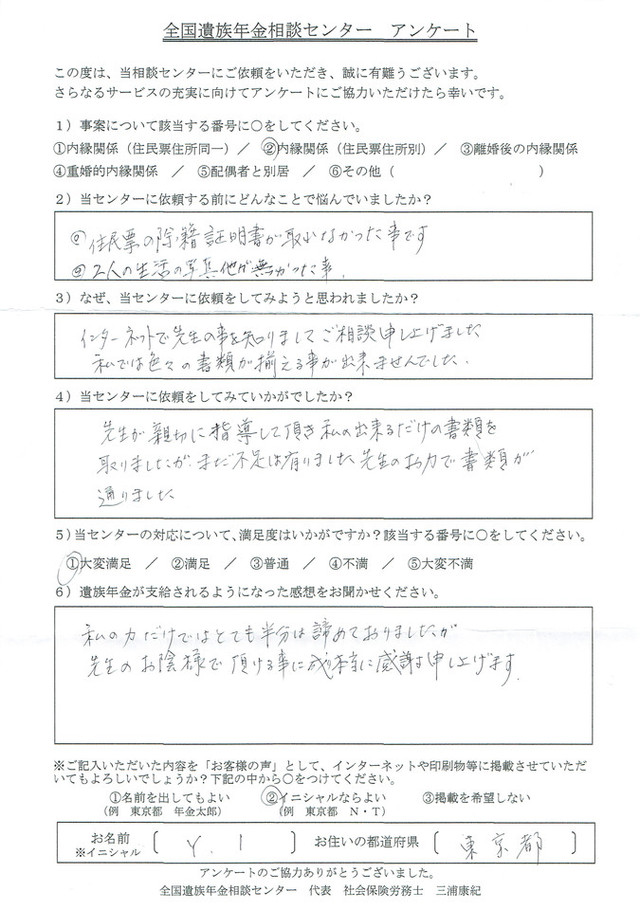 全国遺族年金相談センター　アンケート
この度は、当相談センターにご依頼をいただき、誠に有難うございます。
さらなるサービスの充実に向けてアンケートにご協力いただけたら幸いです。
1）事案について該当する番号に○をしてください。
①内縁関係（住民票住所同一）／　②内縁関係（住民票住所別）／　③離婚後の内縁関係
④重婚的内縁関係　／　⑤配偶者と別居　／　⑥その他（　　　　　　　　　　）
2）当センターに依頼する前にどんなことで悩んでいましたか？
住民票の除籍証明書が取れなかった事です
2人の生活の写真他が無かった事、
3）なぜ、当センターに依頼をしてみようと思われましたか？
インターネットで先生の事を知りましてご相談申し上げました
私では色々の書類が揃える事が出来ませんでした.
4）当センターに依頼をしてみていかがでしたか？
先生が親切に指導して頂き私の出来るだけの書類を
取りましたが、まだ不足は有りました先生のお力で書類が
通りました
5）当センターの対応について、満足度はいかがですか？該当する番号に○をしてください。
①大変満足　／　②満足　／　③普通　／　④不満　／　⑤大変不満
6）遺族年金が支給されるようになった感想をお聞かせください。
私の力だけではとても半分は諦めておりましたが
先生のお陰様で頂ける事に成り本当に感謝申し上げます.
※ご記入いただいた内容を「お客様の声」として、インターネットや印刷物等に掲載させていただ
いてもよろしいでしょうか？下記の中から○をつけてください。
①名前を出してもよい　　②イニシャルならよい　　③掲載を希望しない
（例　東京都　年金太郎）　　（例　東京都　N・T）
お名前　〔　Y. I　〕　お住いの都道府県　〔　東京都　〕
※イニシャル
アンケートのご協力ありがとうございました。
全国遺族年金相談センター　代表　社会保険労務士　三浦康紀